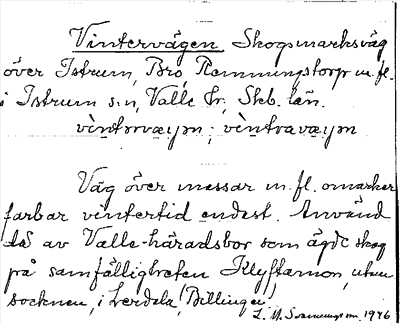 Vintervägen Skogsmarksväg
över Istrum, Bro, Remmingstorp m.fl.
i Istrum s:n, Valle hr, Skb. län.
Väg över mossar m.fl. omarker
farbar vintertid endast. Använd
då av Valle-häradsbor som ägde skog
på samfälligheten Klyftamon, utom
socknen, i Lerdala, Billingen,
1946